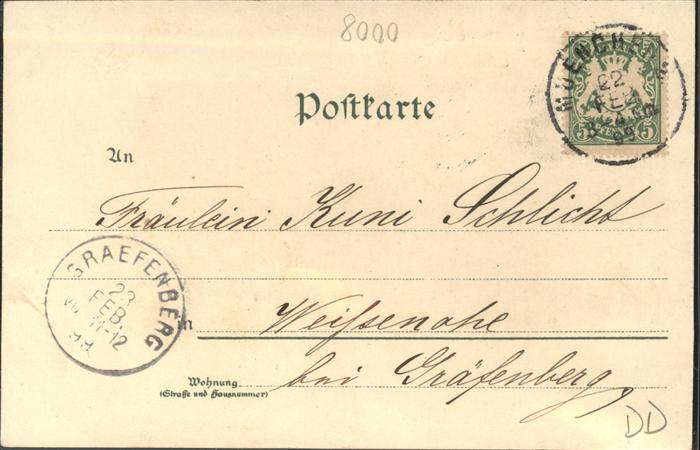 8000
MUENCHEN
22
FEB
99
5 5
Postkarte
An
Fräulein Kuni Schlicht
GRAEFENBERG
23
FEB.
11-12
99
in Weißenohe
bei Gräfenberg,
Wohnung
(Straße und Hausnummer)
DD